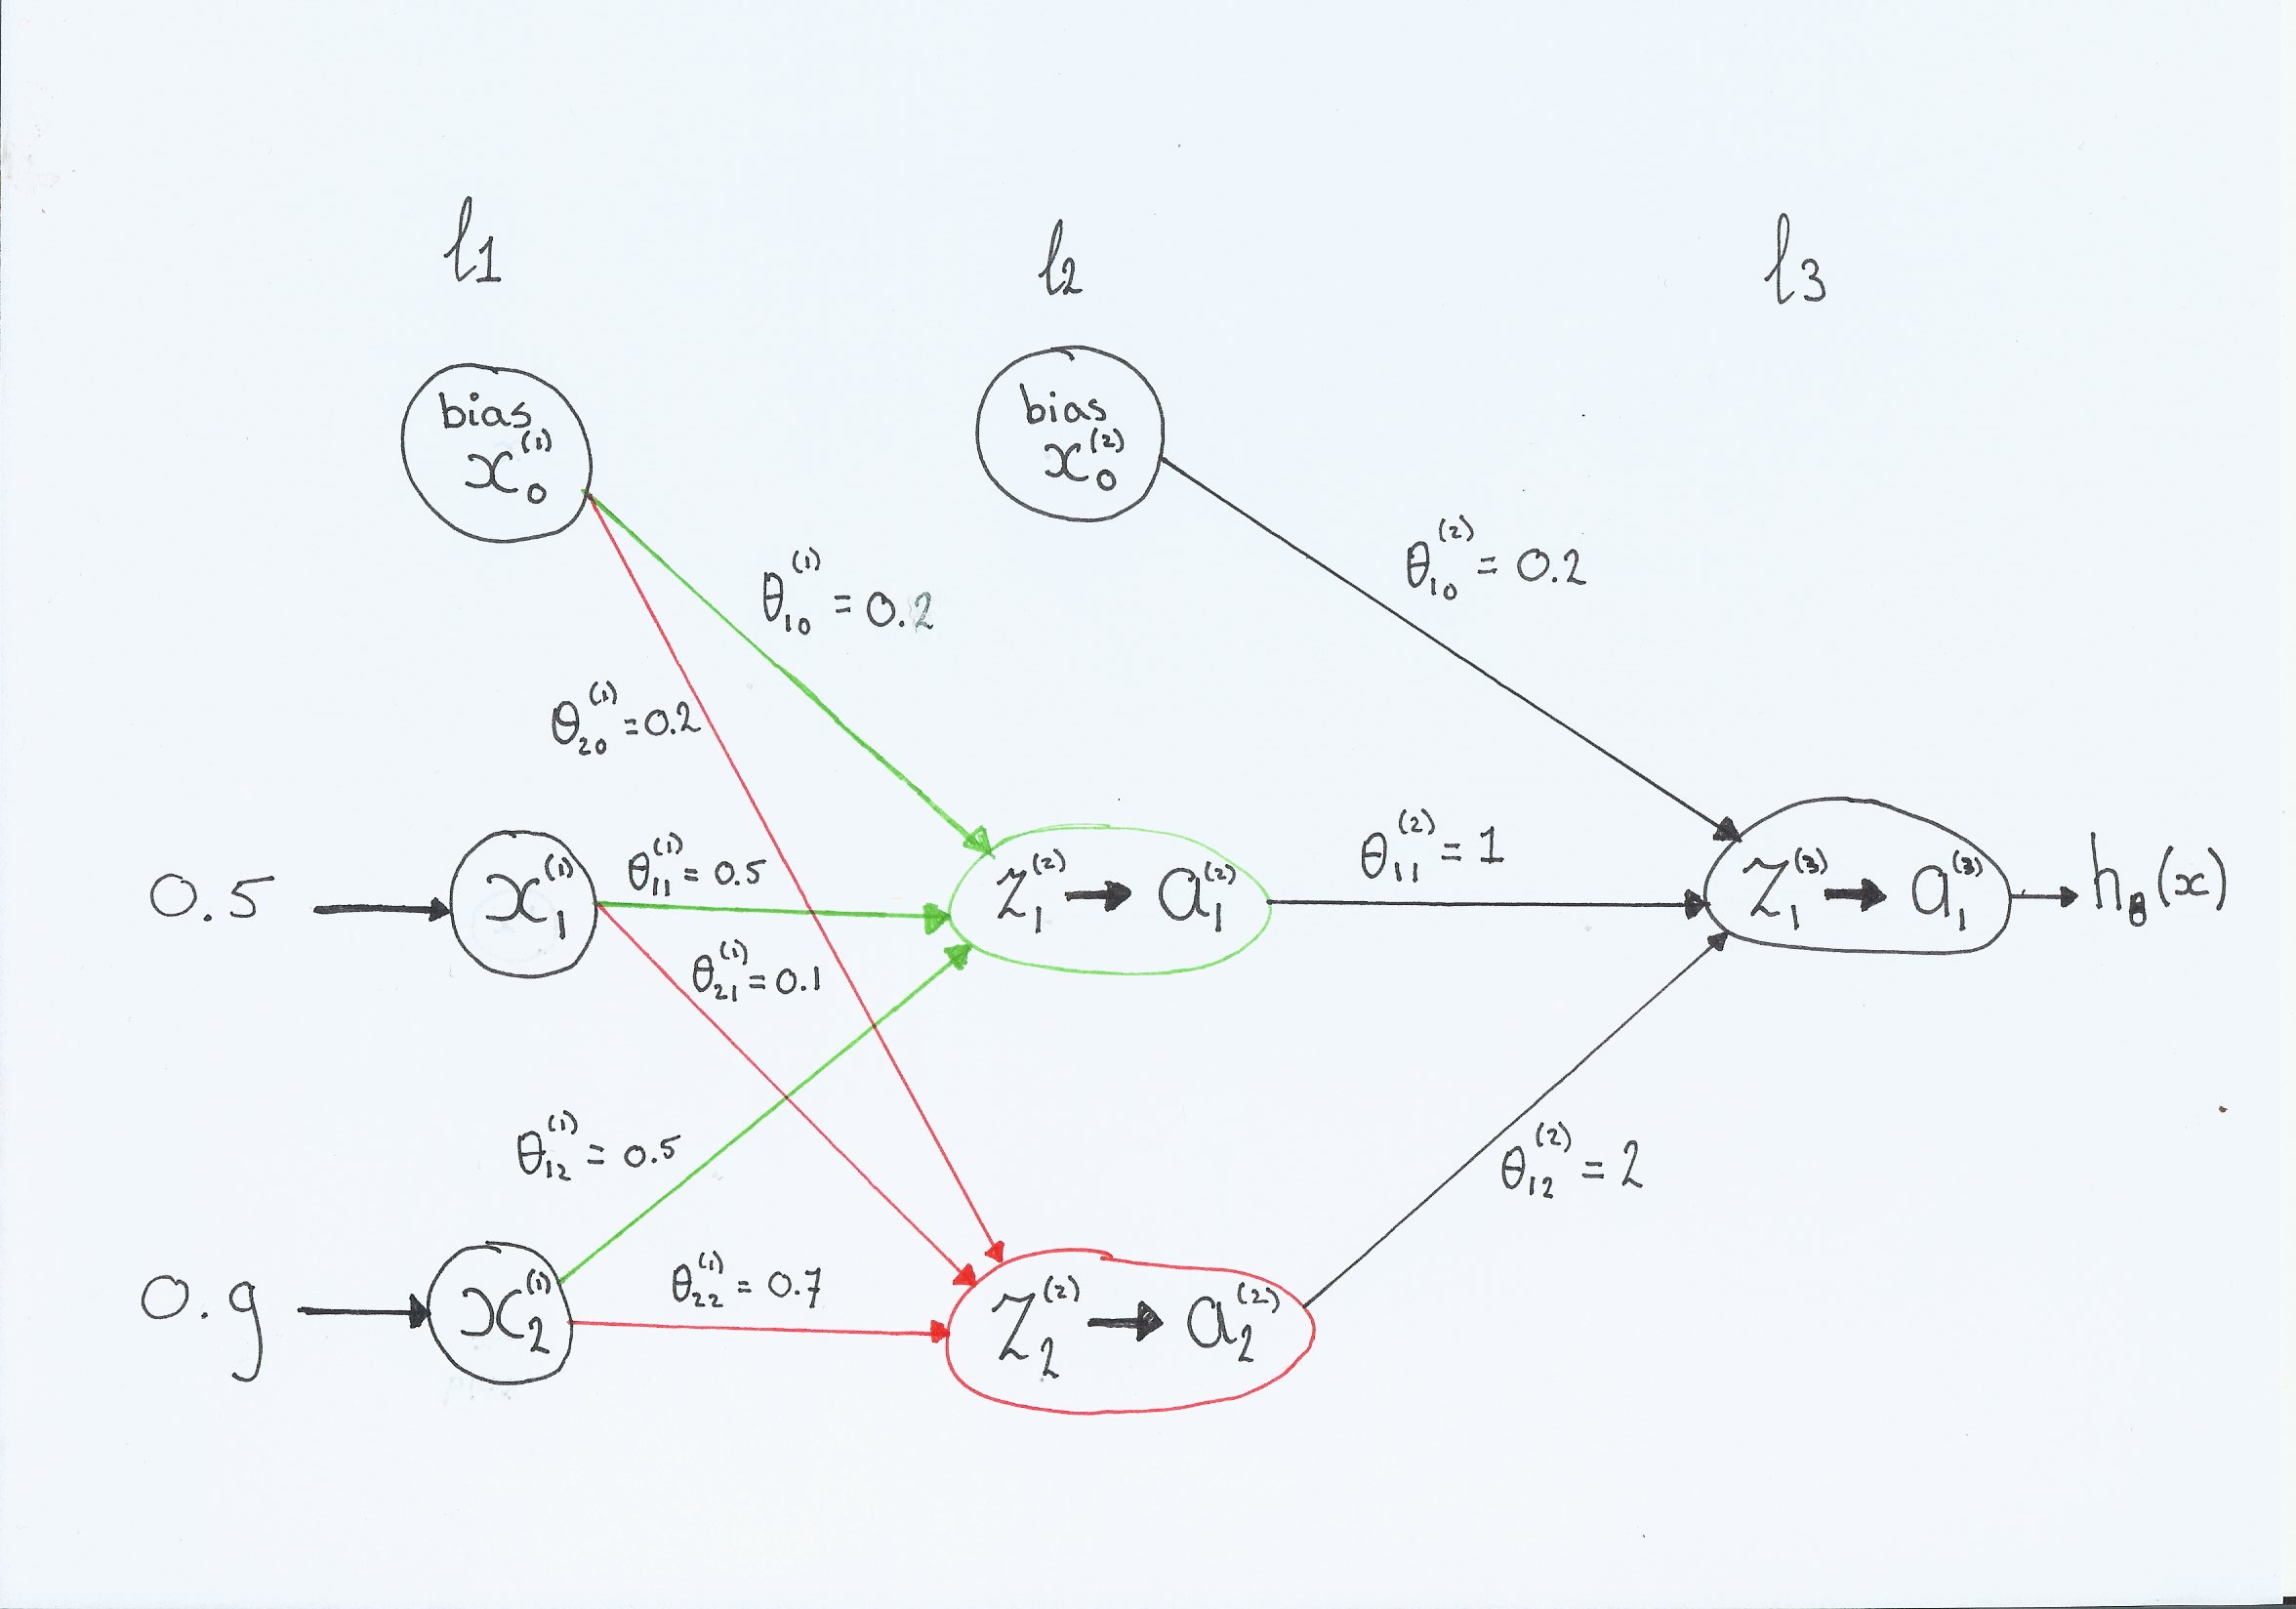 l1 l2 l3
bias
x₀⁽¹⁾
bias
x₀⁽²⁾
θ₁₀⁽¹⁾ = 0.2
θ₁₀⁽²⁾ = 0.2
θ₂₀⁽¹⁾ = 0.2
0.5
x₁⁽¹⁾
θ₁₁⁽¹⁾ = 0.5
z₁⁽²⁾ → a₁⁽²⁾
θ₁₁⁽²⁾ = 1
z₁⁽³⁾ → a₁⁽³⁾
hθ(x)
θ₂₁⁽¹⁾ = 0.1
θ₁₂⁽¹⁾ = 0.5
θ₁₂⁽²⁾ = 2
0.9
x₂⁽¹⁾
θ₂₂⁽¹⁾ = 0.7
z₂⁽²⁾ → a₂⁽²⁾